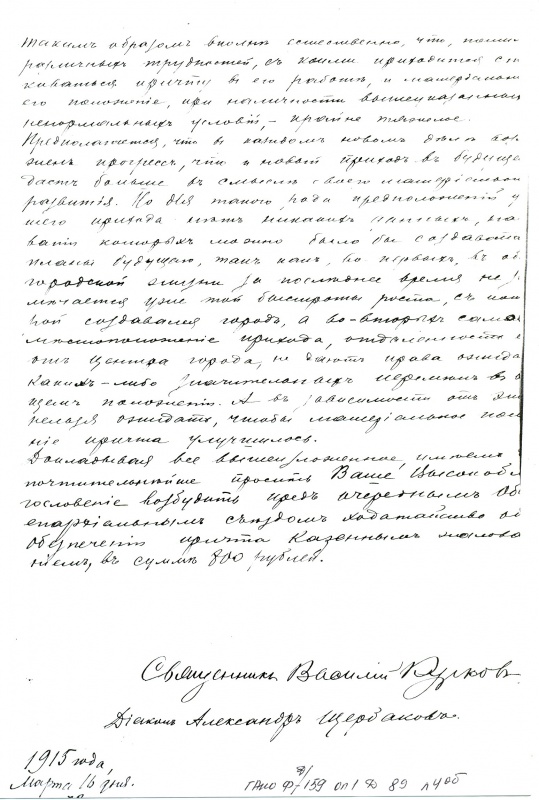 Такимъ образомъ вполнѣ естественно, что, поми
различныхъ трудностей, съ коими приходится ст
киваться причту въ его работѣ, и матеріально
его положеніе, при наличности вышеуказанныхъ
ненормальныхъ условій, - крайне тяжелое.
Предполагается, что въ каждомъ новомъ дѣлѣ дол
женъ прогрессъ, что и новый приходъ въ будуще
дастъ больше въ смыслѣ своего матеріально
развитія. Но для такого рода предположеній у
шего прихода нѣтъ никакихъ данныхъ, на
ваніи которыхъ можно было бы создавать
планы будущаго, такъ какъ, во первыхъ, въ
городской жизни за послѣднее время не за
мѣчается уже той быстроты роста, съ кото
рой создавался городъ, а во-вторыхъ само
мѣстоположеніе прихода, отдаленность
отъ центра города, не даютъ права ожида
какихъ-либо значительныхъ перемѣнъ въ
щемъ положеніи. А въ зависимости отъ это
нельзя ожидать, чтобы матеріальное поло
ніе причта улучшилось.
Докладывая все вышеизложенное имѣемъ
почтительнѣйше просить Ваше Высокобл
гословеніе возбудить предъ очереднымъ
епархіальнымъ съѣздомъ ходатайство об
обезпеченіи причта казеннымъ жалова
ніемъ, въ суммѣ 800 рублей.
Священникъ Василій Курковъ
Діаконъ Александръ Щербаковъ.
1915 года,
Марта 16 дня.
ГАНО Ф Д/159 оп 1 Д 89 л 4 об